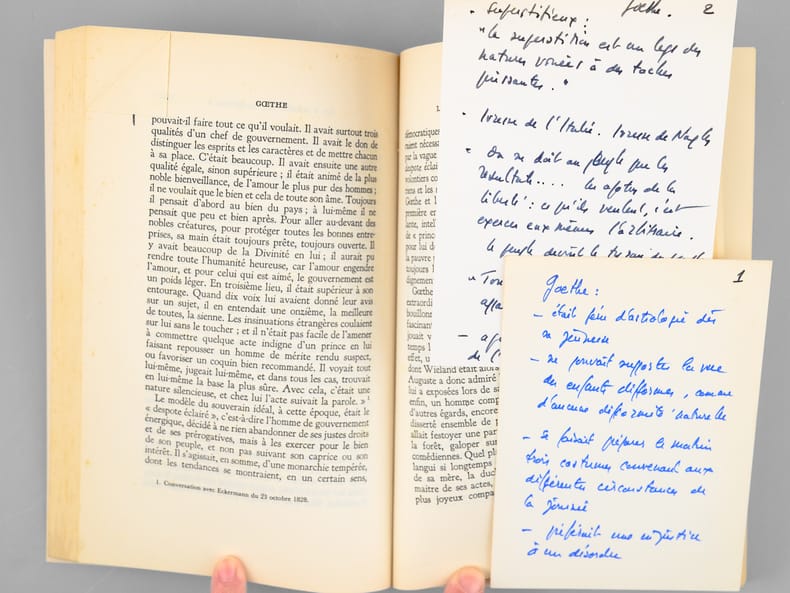 GŒTHE
pouvait-il faire tout ce qu'il voulait. Il avait surtout trois
qualités d'un chef de gouvernement. Il avait le don de
distinguer les esprits et les caractères et de mettre chacun
à sa place. C'était beaucoup. Il avait ensuite une autre
qualité égale, sinon supérieure ; il était animé de la plus
noble bienveillance, de l'amour le plus pur des hommes ;
il ne voulait que le bien et cela de toute son âme. Toujours
il pensait d'abord au bien du pays ; à lui-même il ne
pensait que peu et bien après. Pour aller au-devant des
nobles créatures, pour protéger toutes les bonnes entre-
prises, sa main était toujours prête, toujours ouverte. Il
y avait beaucoup de la Divinité en lui ; il aurait pu
rendre toute l'humanité heureuse, car l'amour engendre
l'amour, et pour celui qui est aimé, le gouvernement est
un poids léger. En troisième lieu, il était supérieur à son
entourage. Quand dix voix lui avaient donné leur avis
sur un sujet, il en entendait une onzième, la meilleure
de toutes, la sienne. Les insinuations étrangères coulaient
sur lui sans le toucher ; et il n'était pas facile de l'amener
à commettre quelque acte indigne d'un prince en lui
faisant repousser un homme de mérite rendu suspect,
ou favoriser un coquin bien recommandé. Il voyait tout
lui-même, jugeait lui-même, et dans tous les cas, trouvait
en lui-même la base la plus sûre. Avec cela, c'était une
nature silencieuse, et chez lui l'acte suivait la parole. » 1
Le modèle du souverain idéal, à cette époque, était le
« despote éclairé », c'est-à-dire l'homme de gouvernement
énergique, décidé à ne rien abandonner de ses justes droits
et de ses prérogatives, mais à les exercer pour le bien
de son peuple, et non pas suivant son caprice ou son
intérêt. Il s'agissait, en somme, d'une monarchie tempérée,
dont les tendances se montraient, en un certain sens,
1. Conversation avec Eckermann du 23 octobre 1828.
L
démocratiques
raient nécessai
par la vague
volontiers co
et les
Gœthe et l
première en
intimité, de
« prince
par lui do
la pauvre
toujours
dignement
Gœthe
extraordi
bouillons
fascinant
jouait v
temps l
et il
dont Wieland était alors
Auguste a donc admiré
a exposées lors de sa
enfin, un homme comp
d'autres égards, encore
disserté ensemble de
allait festoyer une par
la forêt, galoper sur
comédiennes. Quel plu
langui si longtemps
de sa mère, la duch
maître de ses actes,
plus joyeux compa
Goethe. 2
• Superstitieux :
"la superstition est un legs des
natures vouées à des taches
puissantes."
• Ivresse de l'Italie. Ivresse de Naples
• On ne doit au peuple que les
résultats.... les apotres de la
liberté : ce qu'ils veulent, c'est
exercer eux mêmes l'arbitraire.
le peuple
"Tou
affa
1
Goethe :
– était féru d'astrologie dès
sa jeunesse
– ne pouvait supporter la vue
des enfants difformes, comme
d'aucune difformité naturelle
– se faisait préparer le matin
trois costumes convenant aux
différentes circonstances de
la journée
– préférait une injustice
à un désordre